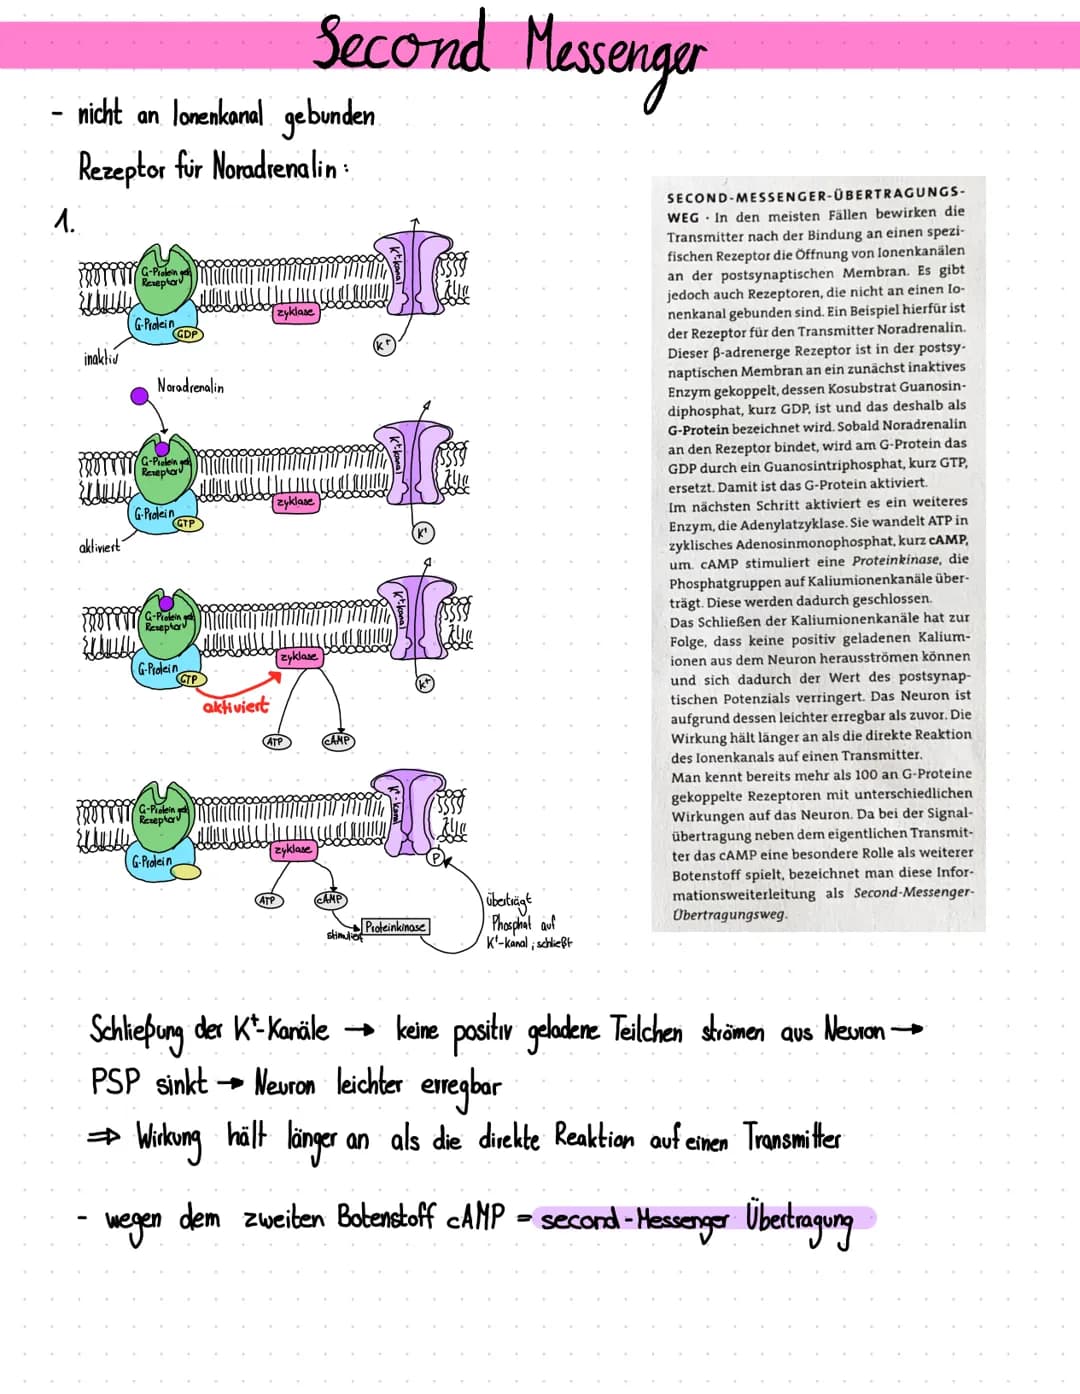 Second Messenger
- nicht an Ionenkanal gebunden
Rezeptor für Noradrenalin:
1.
G-Protein gek.
Rezeptor
G-Protein
GDP
inaktiv
zyklase
K⁺-kanal
K⁺
Noradrenalin
G-Protein gek.
Rezeptor
G-Protein
GTP
aktiviert
zyklase
K⁺-kanal
K⁺
G-Protein gek.
Rezeptor
G-Protein
GTP
aktiviert
zyklase
ATP
cAMP
K⁺-kanal
K⁺
G-Protein gek.
Rezeptor
G-Protein
zyklase
ATP
cAMP
stimuliert
Proteinkinase
K⁺-kanal
P
überträgt
Phosphat auf
K⁺-kanal; schließt
SECOND-MESSENGER-ÜBERTRAGUNGS-
WEG · In den meisten Fällen bewirken die
Transmitter nach der Bindung an einen spezi-
fischen Rezeptor die Öffnung von Ionenkanälen
an der postsynaptischen Membran. Es gibt
jedoch auch Rezeptoren, die nicht an einen Io-
nenkanal gebunden sind. Ein Beispiel hierfür ist
der Rezeptor für den Transmitter Noradrenalin.
Dieser β-adrenerge Rezeptor ist in der postsy-
naptischen Membran an ein zunächst inaktives
Enzym gekoppelt, dessen Kosubstrat Guanosin-
diphosphat, kurz GDP, ist und das deshalb als
G-Protein bezeichnet wird. Sobald Noradrenalin
an den Rezeptor bindet, wird am G-Protein das
GDP durch ein Guanosintriphosphat, kurz GTP,
ersetzt. Damit ist das G-Protein aktiviert.
Im nächsten Schritt aktiviert es ein weiteres
Enzym, die Adenylatzyklase. Sie wandelt ATP in
zyklisches Adenosinmonophosphat, kurz cAMP,
um. cAMP stimuliert eine Proteinkinase, die
Phosphatgruppen auf Kaliumionenkanäle über-
trägt. Diese werden dadurch geschlossen.
Das Schließen der Kaliumionenkanäle hat zur
Folge, dass keine positiv geladenen Kalium-
ionen aus dem Neuron herausströmen können
und sich dadurch der Wert des postsynap-
tischen Potenzials verringert. Das Neuron ist
aufgrund dessen leichter erregbar als zuvor. Die
Wirkung hält länger an als die direkte Reaktion
des Ionenkanals auf einen Transmitter.
Man kennt bereits mehr als 100 an G-Proteine
gekoppelte Rezeptoren mit unterschiedlichen
Wirkungen auf das Neuron. Da bei der Signal-
übertragung neben dem eigentlichen Transmit-
ter das cAMP eine besondere Rolle als weiterer
Botenstoff spielt, bezeichnet man diese Infor-
mationsweiterleitung als Second-Messenger-
Übertragungsweg.
Schließung der K⁺-Kanäle → keine positiv geladene Teilchen strömen aus Neuron →
PSP sinkt → Neuron leichter erregbar
⇒ Wirkung hält länger an als die direkte Reaktion auf einen Transmitter
- wegen dem zweiten Botenstoff cAMP = second-Messenger Übertragung